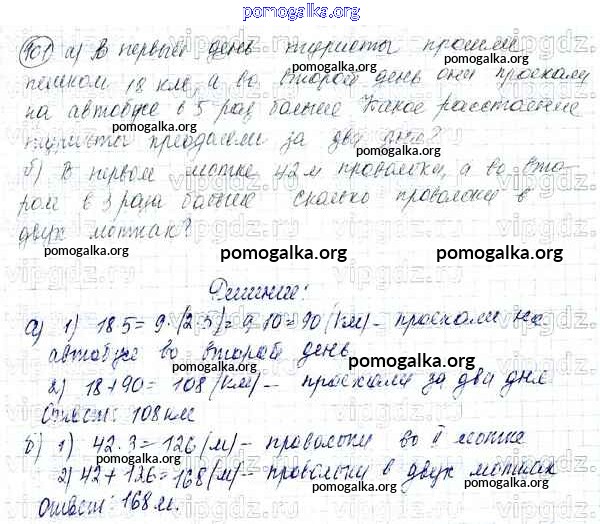 pomogalka.org
901 а) В первый день туристы прошли
пешком 18 км, а во второй день они проехали
на автобусе в 5 раз больше Какое расстояние
туристы преодолели за два дня?
б) В первом мотке 42 м проволоки, а во вто-
ром в 3 раза больше Сколько проволоки в
двух мотках?
Решение:
а) 1) 18·5 = 9·(2·5) = 9·10 = 90 (км) – проехали на
автобусе во второй день
2) 18+90 = 108 (км) – проехали за два дня
Ответ: 108 км
б) 1) 42·3 = 126 (м) – проволоки во II мотке
2) 42+126 = 168 (м) – проволоки в двух мотках
Ответ: 168 м.